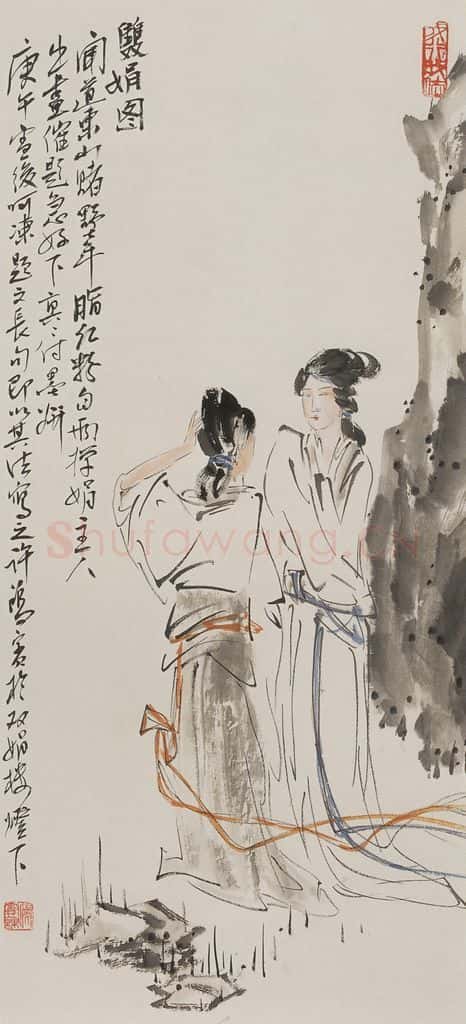 雙娟图
聞道東山賭墅年脂红粉白兩嬋娟主人
出畫催題急好下真真付墨妍
庚午雪後呵凍題文長句即以其法寫之许鴻宾於双娟楼燈下
Shufawang.CN